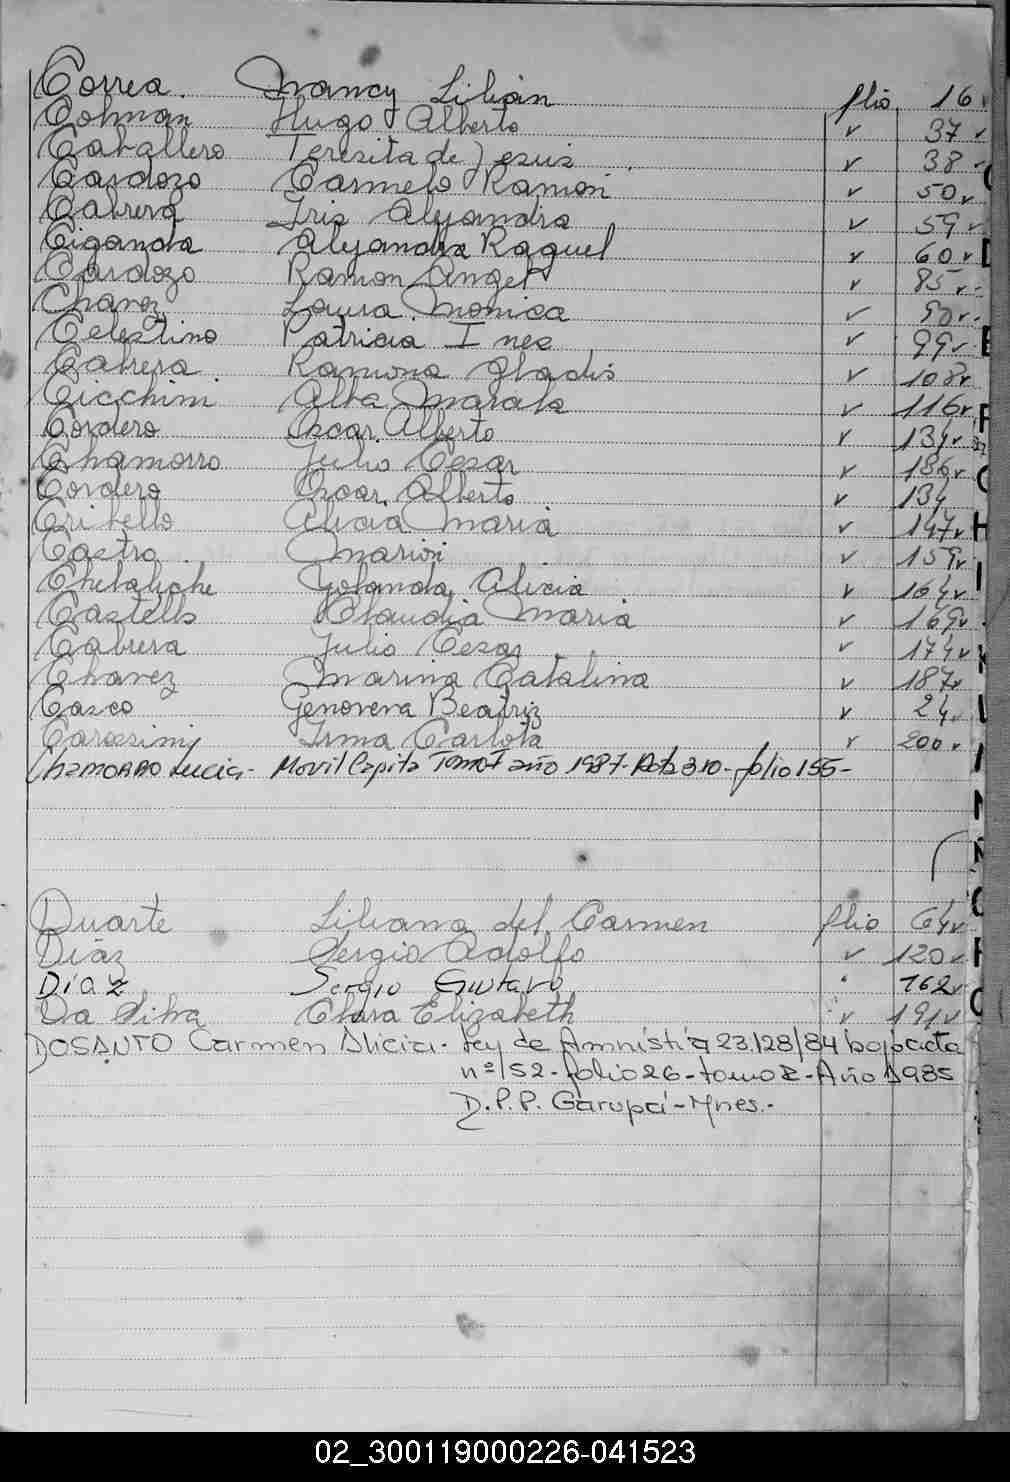 Correa. Nancy Lilian flio 16 v
Colman Hugo Alberto v 37 v
Caballero Teresita de Jesus v 38 v
Cardozo Carmelo Ramon v 50 v
Cabrera Iris Alejandra v 59 v
Ciganda Alejandra Raquel v 60 v
Cardozo Ramon Angel v 85 v
Chavez Laura Monica v 90 v
Celestino Patricia Ines v 99 v
Cabrera Ramona Gladis v 108 v
Cicchini Alba v 116 v
Cordero Oscar Alberto v 134 v
Chamorro Julio Cesar v 186 v
Cordero Oscar Alberto v 134
Cribello Alicia Maria v 147 v
Castro Marion v 159 v
Yolanda Alicia v 164 v
Castells Claudia Maria v 169 v
Cabrera Julio Cesar v 174 v
Chavez Marina Catalina v 187 v
Casco Genoveva Beatriz v 24
Irma Carlota v 200 v
Chamorro Lucia - Movil Capita Tomo I año 1987 - Acta 310 - folio 155 -
Duarte Liliana del Carmen flio 64 v
Diaz Sergio Adolfo v 120 v
Diaz Sergio Gustavo 162 v
Da Silva Clara Elizabeth v 191 v
DOSANTO Carmen Alicia - Ley de Amnistia 23.128/84 bajo acta
nº 152 - folio 26 - tomo I - Año 1985
D.P.P. Garupá - Mnes. -
02_300119000226-041523